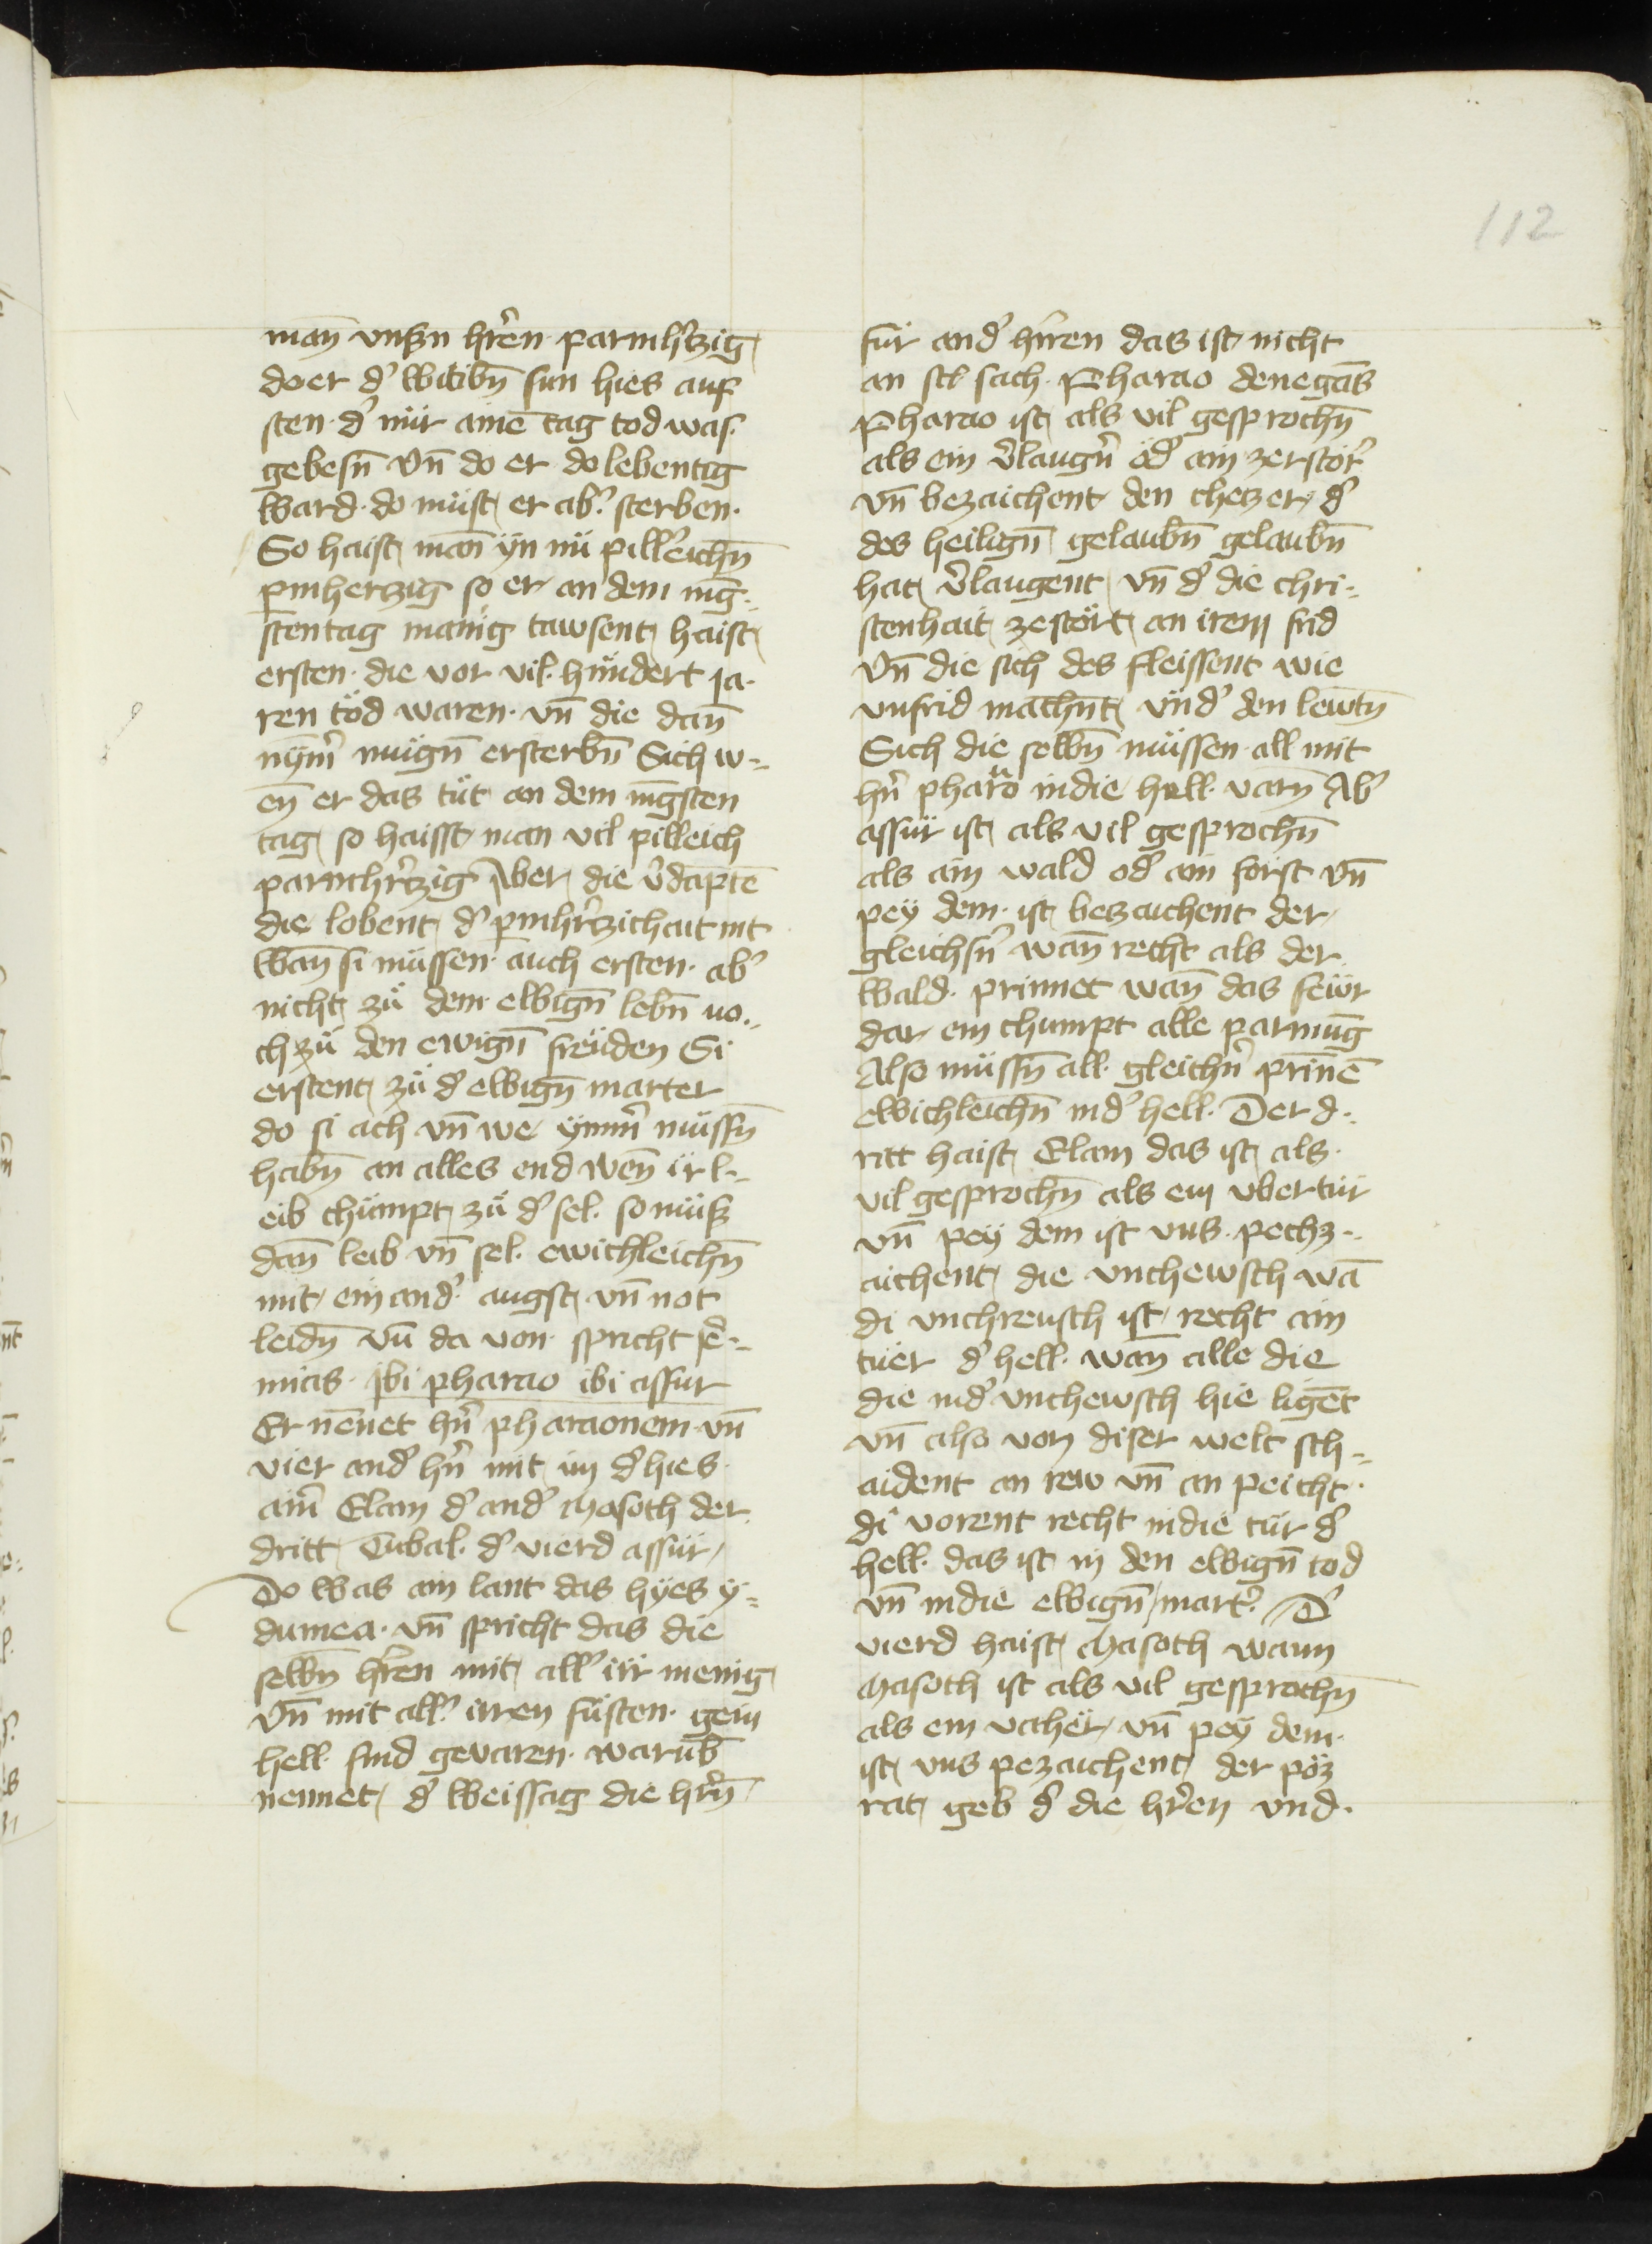 112
man̄ vnsn hr̄en parmhʼczig
do er dʼ witibn̄ sun hies auf
sten · dʼ nür aine tag tod was
gebesn̄ vn̄ do er do lebentig
ward · do müst er abʼ sterben ·
So haist man yn nü pillʼeichn̄
pmherczig so er an dem iu̇ng⸗
stentag manig tawsent haist
ersten · die vor vil · hundert ja⸗
ren töd waren · vn̄ die dan̄
nymʼ mugn̄ ersterbn̄ Sich w⸗
en̄ er das tüt an dem iūgsten
tag so haisst man vil pilleich
parmhrʼczig Aber die vʼdaptē
die lobent dʼ pmhrʼczichait nit
wan̄ si müssen · auch ersten · abʼ
nicht zü dem · ewign̄ lebn̄ no⸗
ch zü den ewign̄ freüden Si
erstent zü dʼ ewign̄ marter
do si ach vn̄ we ymmʼ müssn̄
habn̄ an alles end wen̄ ir l⸗
eib chümpt zü dʼ sel · so müß
dan̄ leib vn̄ sel · ewichleichn̄
mit einandʼ angst vn̄ not
leidn̄ vn̄ da von · spricht ieʼ⸗
mias · ibi pharao ibi assur
Er nennet hrʼn pharaonem vn̄
vier andʼ hrʼn mit im dʼ hies
ainʼ Elam dʼ andʼ Masoth der
dritt Tubal · dʼ vierd assür
Do was ain lant das hyes y⸗
dumea · vn̄ spricht das die
selbn̄ hrʼen mit allʼ irr menig
vn̄ mit allʼ irren füsten · gein
hell · sind gevaren · warub̄
nennet dʼ weissag die hrʼn̄
für andʼ hrʼren das ist nicht
an sach · Pharao denegās
Pharao ist als vil gesprochn̄
als ein vʼlaugnʼ ödʼ ain zerstörʼ
vn̄ bezaichent den chetzer dʼ
des heilign̄ gelaubn̄ gelaubn̄
hat vʼlaugent vn̄ dʼ die chri⸗
stenhait zestört an irem frid
vn̄ die sich des fleissent wie
vnfrid machn̄t vndʼ den lewtn̄
Sich die selbn̄ müssen · all mit
hrʼn pharao in die hell · varn̄ Abʼ
assür ist als vil gesprochn̄
als ain wald odʼ ain forst vn̄
pey dem · ist bezaichent der
gleichsnʼ wan̄ recht als der
wald · prinnet wan̄ das fewr
dar ein chumpt alle parmu̅g
Also müssn̄ all · gleichnʼ prinnē
ewichleichn̄ in dʼ hell · Der d⸗
ritt haist Elam das ist als ·
vil gesprochn̄ als ein vbertür
vn̄ pey dem ist vns · pechz⸗
aichent die vnchewsch wā
di vnchreusch ist recht ain
tüer dʼ hell · wan̄ alle die
die in dʼ vnchewsch hie ligēt
vn̄ also von diser welt sch⸗
aident an rew vn̄ an peicht ·
di vorent recht in die tür dʼ
hell · das ist in den ewign̄ tod
vn̄ in die ewign̄ martʼ · Dʼ
vierd haist Masoth wann
Masoth ist als vil gesprochn̄
als ein vaher vn̄ pey dem ·
ist vns pezaichent der pöz
rat geb dʼ die hrʼen vnd ·